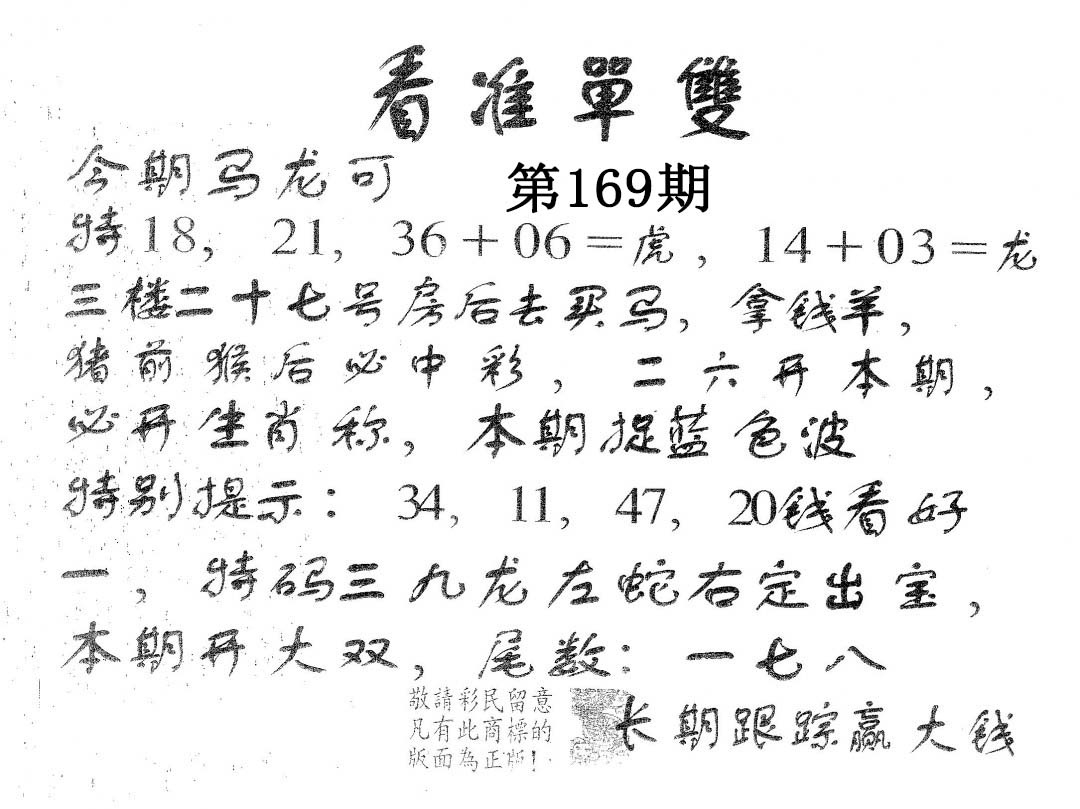 看准單雙
今期马龙可
第169期
特18, 21, 36+06=虎, 14+03=龙
三楼二十七号房后去买马, 拿钱羊,
猪前猴后必中彩, 二六开本期,
必开生肖称, 本期捉蓝色波
特别提示: 34, 11, 47, 20钱看好
一, 特码三九龙左蛇右定出宝,
本期开大双, 尾数: 一七八
敬請彩民留意
凡有此商標的
版面為正版!
长期跟踪赢大钱